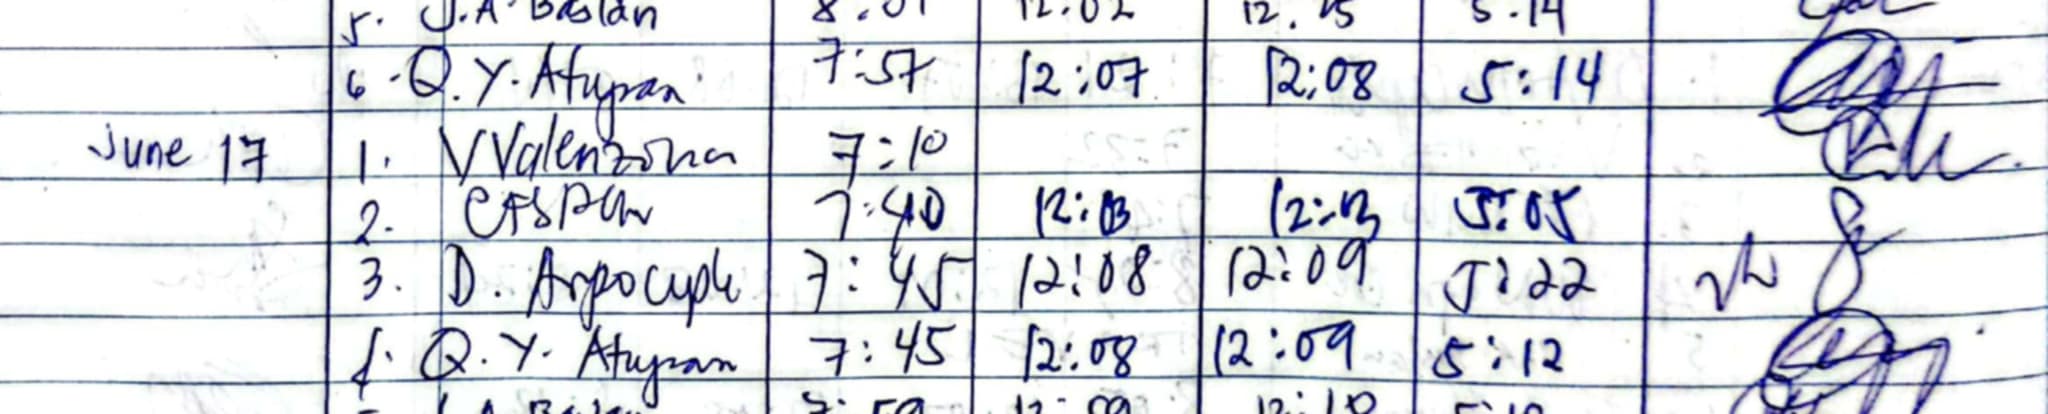 5. J.A. Baslan 8:01 12:02 12:15 5:14
6. Q.Y. Atupan 7:57 12:07 12:08 5:14
June 17 1. VValenzona 7:10
2. 7:40 12:13 12:13 5:05
3. D. 7:45 12:08 12:09 5:22
4. Q.Y. Atupan 7:45 12:08 12:09 5:12
7:59 12:09 12:10